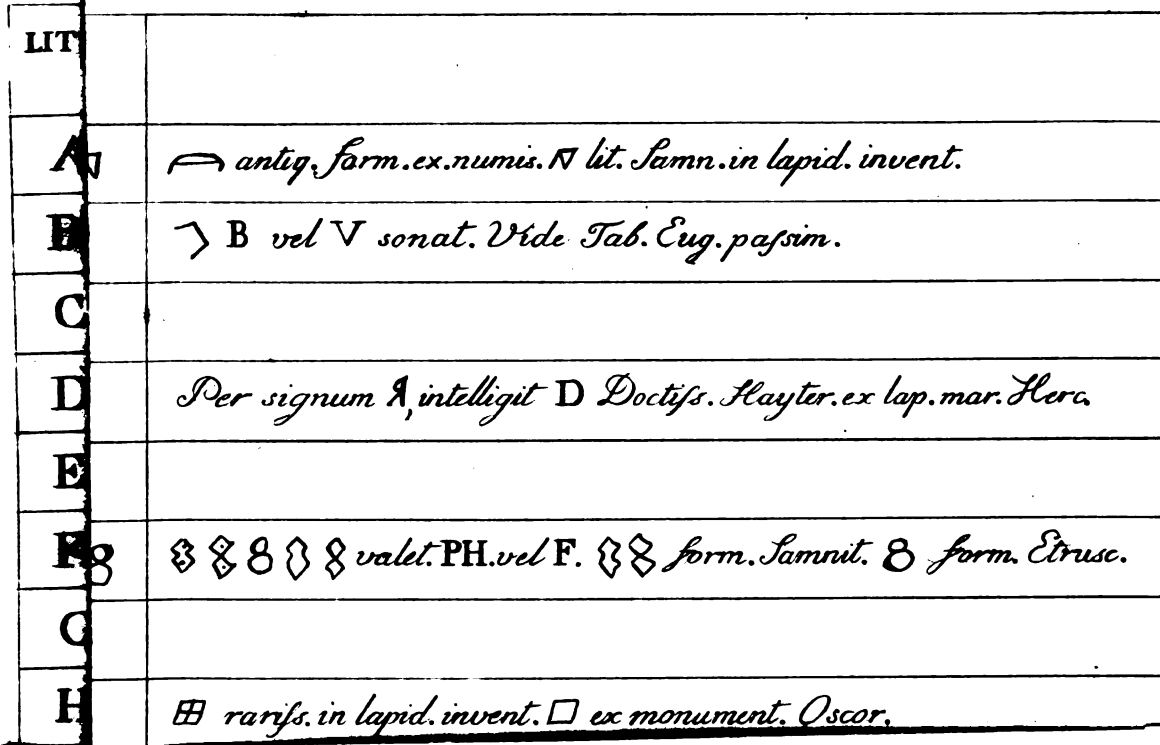 LIT
A antiq. form. ex. numis. lit. Samn. in lapid. invent.
B B vel V sonat. Vide Tab. Eug. paſsim.
C
D Per signum, intelligit D Doctiſs. Hayter. ex lap. mar. Herc.
E
F 8 valet. PH. vel F. form. Samnit. 8 form. Etrusc.
G
H rariſs. in lapid. invent. ex monument. Oscor.